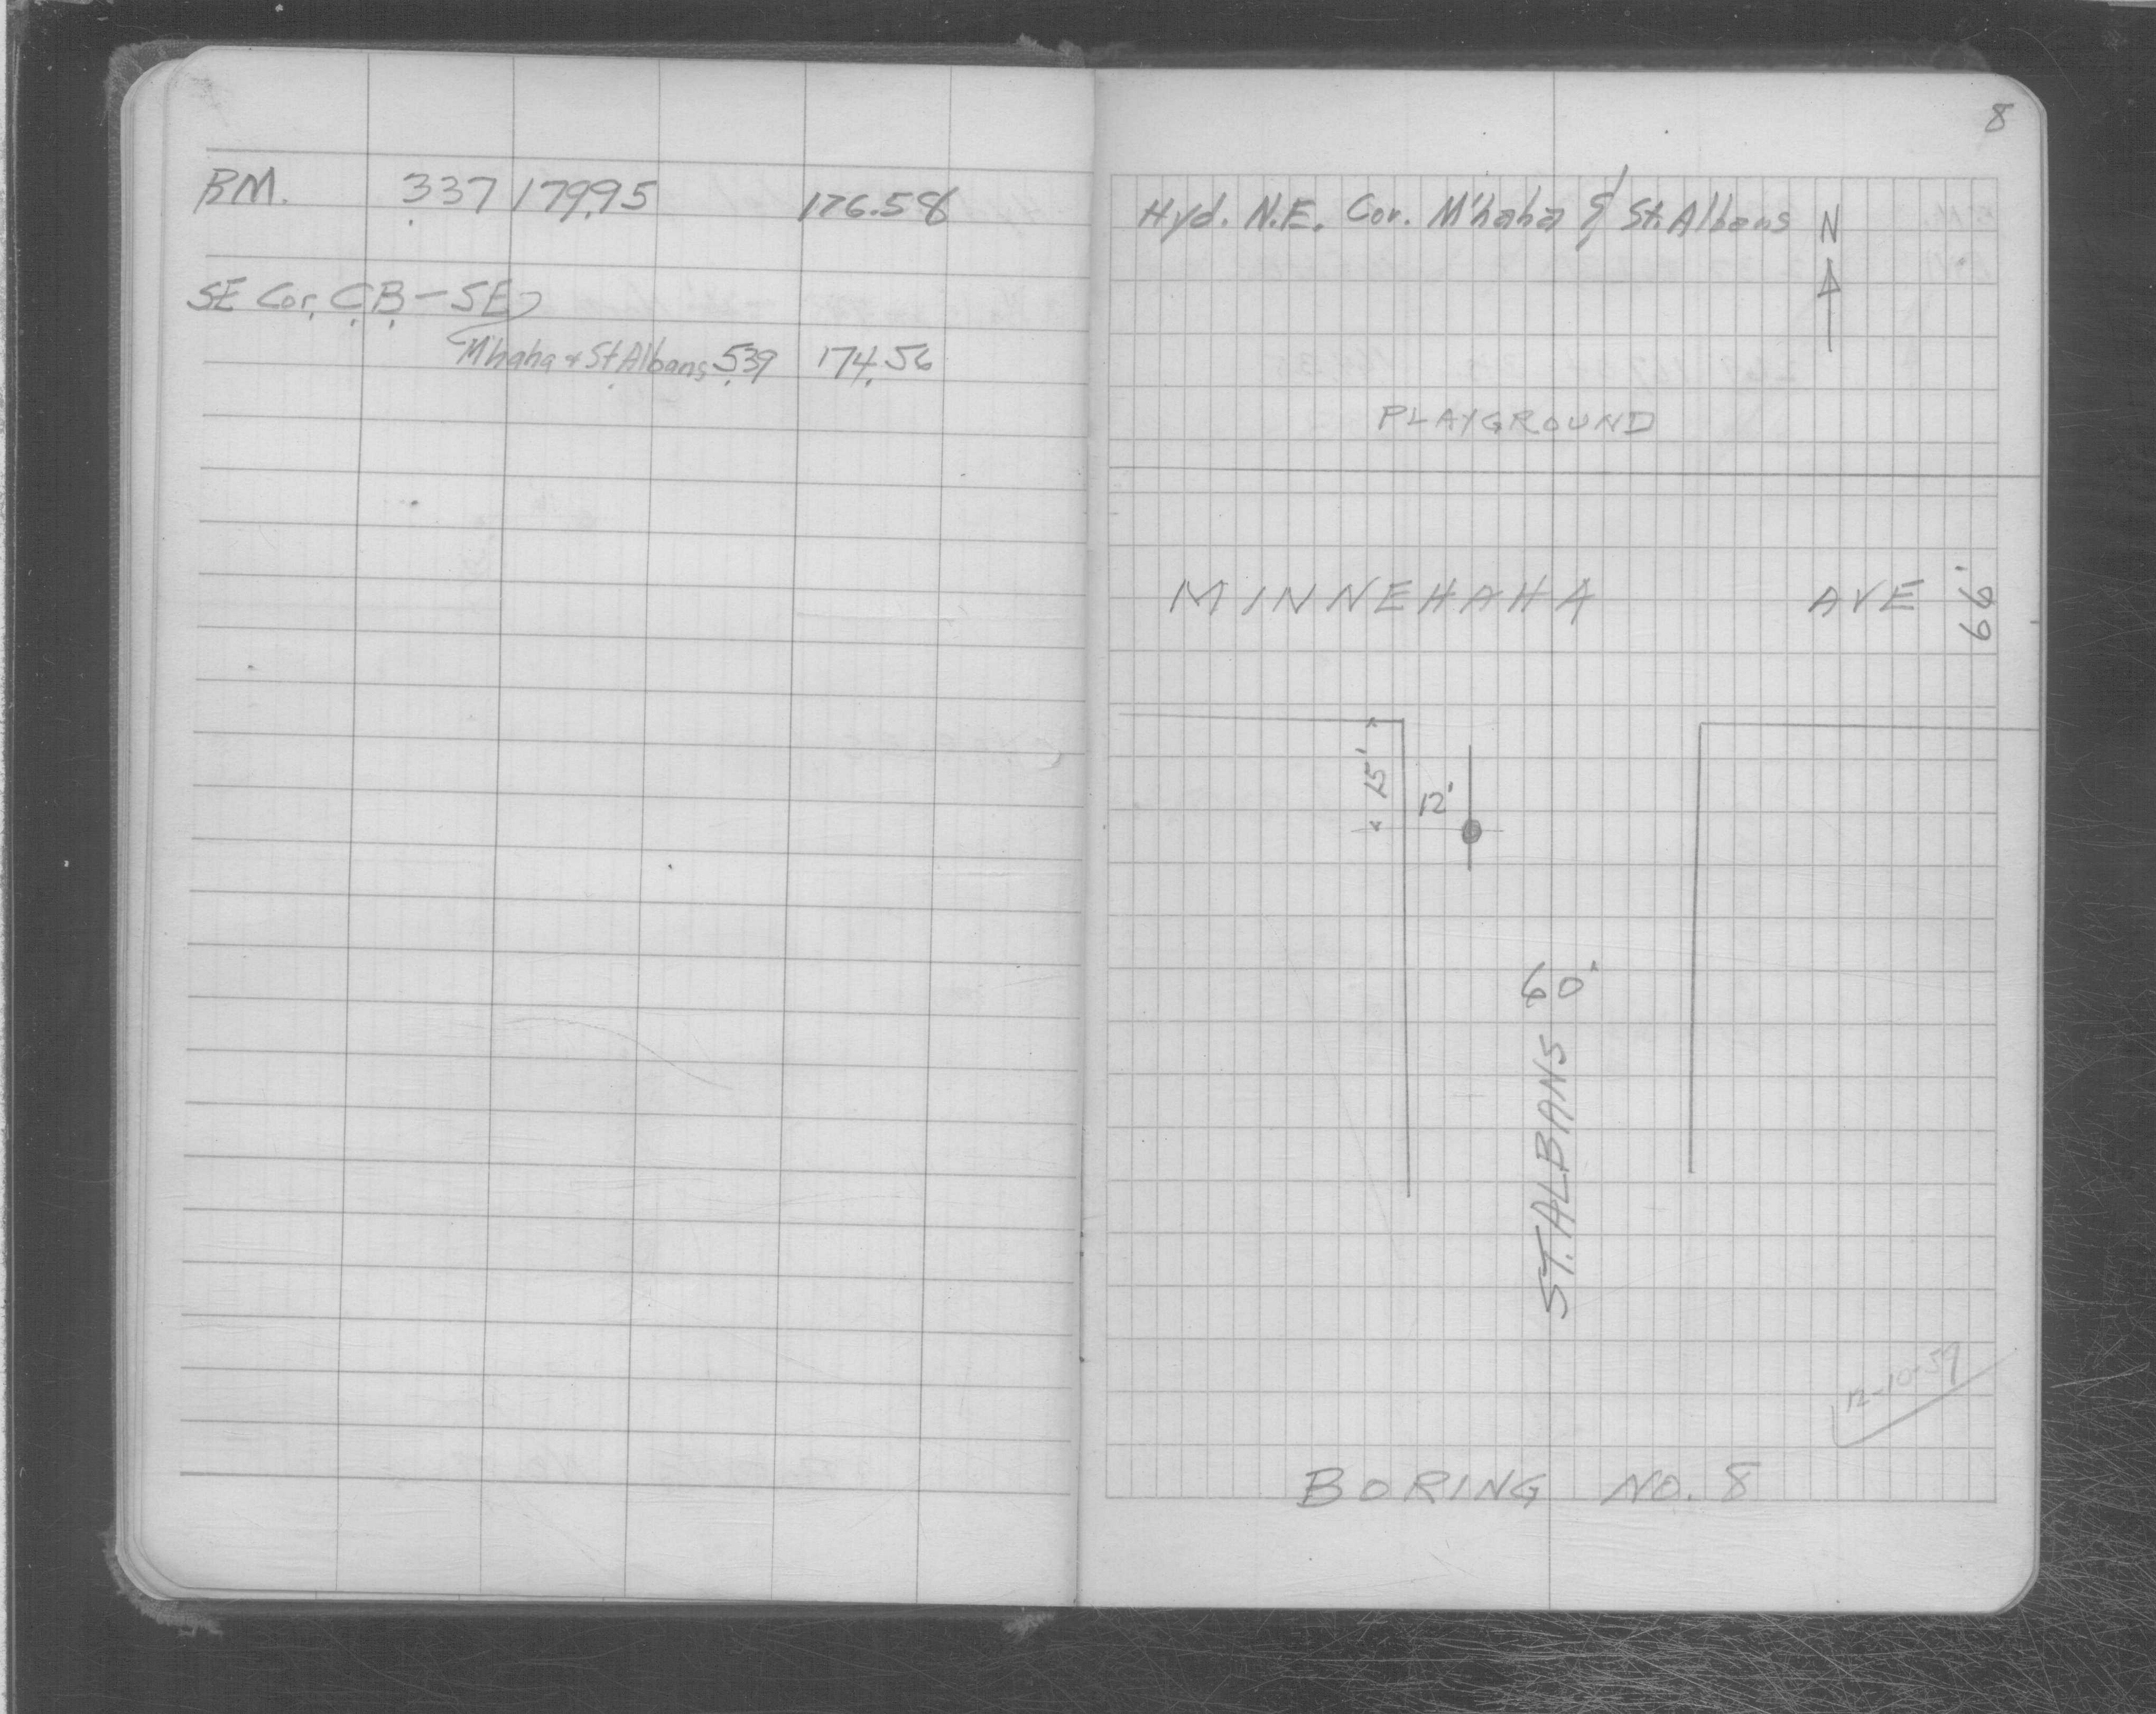 8
BM. 3.37 179.95 176.58
SE Cor. C.B. - SE
M'haha & St. Albans 5.39 174.56
Hyd. N.E. Cor. M'haha & St. Albans
N
PLAYGROUND
MINNEHAHA AVE 66'
25'
12'
ST. ALBANS 60'
12-10-59
BORING NO. 8